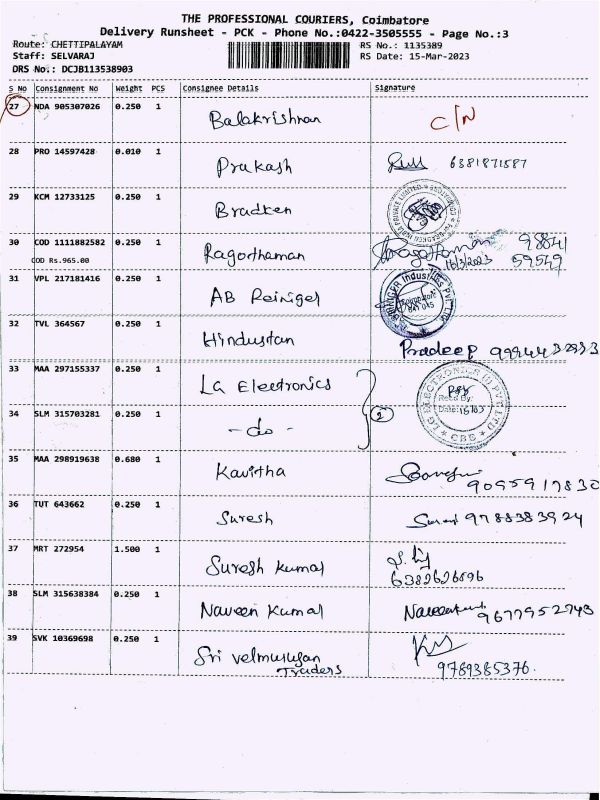 THE PROFESSIONAL COURIERS, Coimbatore
Delivery Runsheet - PCK - Phone No.:0422-3505555 - Page No.:3
Route: CHETTIPALAYAM RS No.: 1135389
Staff: SELVARAJ RS Date: 15-Mar-2023
DRS No.: DCJB113538903
S No Consignment No Weight PCS Consignee Details Signature
27 NDA 905307026 0.250 1 Balakrishnan C/N
28 PRO 14597428 0.010 1 Prakash 6381871587
29 KCM 12733125 0.250 1 Bradken
30 COD 1111882582 0.250 1 Ragorthaman 98841
COD Rs.965.00 16/3/2023 59549
31 VPL 217181416 0.250 1 AB Reiniger
32 TVL 364567 0.250 1 Hindustan Pradeep
33 MAA 297155337 0.250 1 La Electronics
34 SLM 315703281 0.250 1 - do - 2
LG ELECTRONICS (I) PVT LTD
Recd By:
Date:
CBE
35 MAA 298919638 0.680 1 Kavitha 9095917830
36 TUT 643662 0.250 1 Suresh 9788383924
37 MRT 272954 1.500 1 Suresh Kumar
6382626596
38 SLM 315638384 0.250 1 Naveen Kumar 9677952743
39 SVK 10369698 0.250 1 Sri velmurugan
Traders 9789385376.